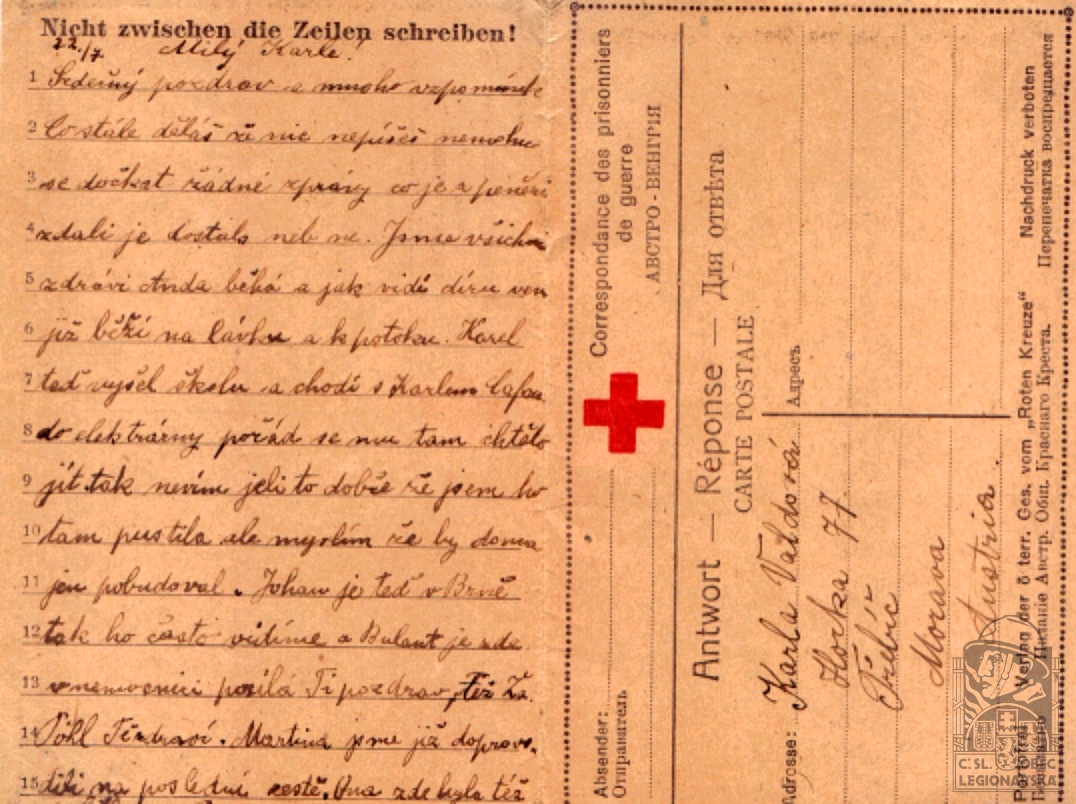 Nicht zwischen die Zeilen schreiben!
22./7. Milý Karle!
1 Srdečný pozdrav a mnoho vzpomínek
2 Co stále děláš že nic nepíšeš nemohu
3 se dočkat žádné zprávy co je z penězi
4 zdali je dostals neb ne. Jsme všichni
5 zdrávi Anda běhá a jak vidí díru ven
6 již běží na lávku a k potoku. Karel
7 teď vyšel školu a chodí s Karlem
8 do elektrárny pořád se mu tam chtělo
9 jít tak nevím jeli to dobře že jsem ho
10 tam pustila ale myslím že by doma
11 jen pobudoval. Johan je teď v Brně
12 tak ho často vidíme a Bulant je zde
13 v nemocnici posílá Ti pozdrav, též
14 Pöhl Tě zdraví. Martina jsme již doprovo-
15 dili na poslední cestě. Ona zde byla též
Correspondance des prisonniers
de guerre
АВСТРО-ВЕНГРІЯ
Antwort — Réponse — Для отвѣта
CARTE POSTALE
Absender:
Отправитель
Adresse: Karla Valdová Адресъ
Horka 77.
Třebíč
Morava
Austria.
Verlag der öterr. Ges. vom „Roten Kreuze“ Nachdruck verboten
Изданіе Австр. Общ. Краснаго Креста. Перепечатка воспрещается
Portofrei
Č.SL. OBEC
LEGIONÁŘSKÁ